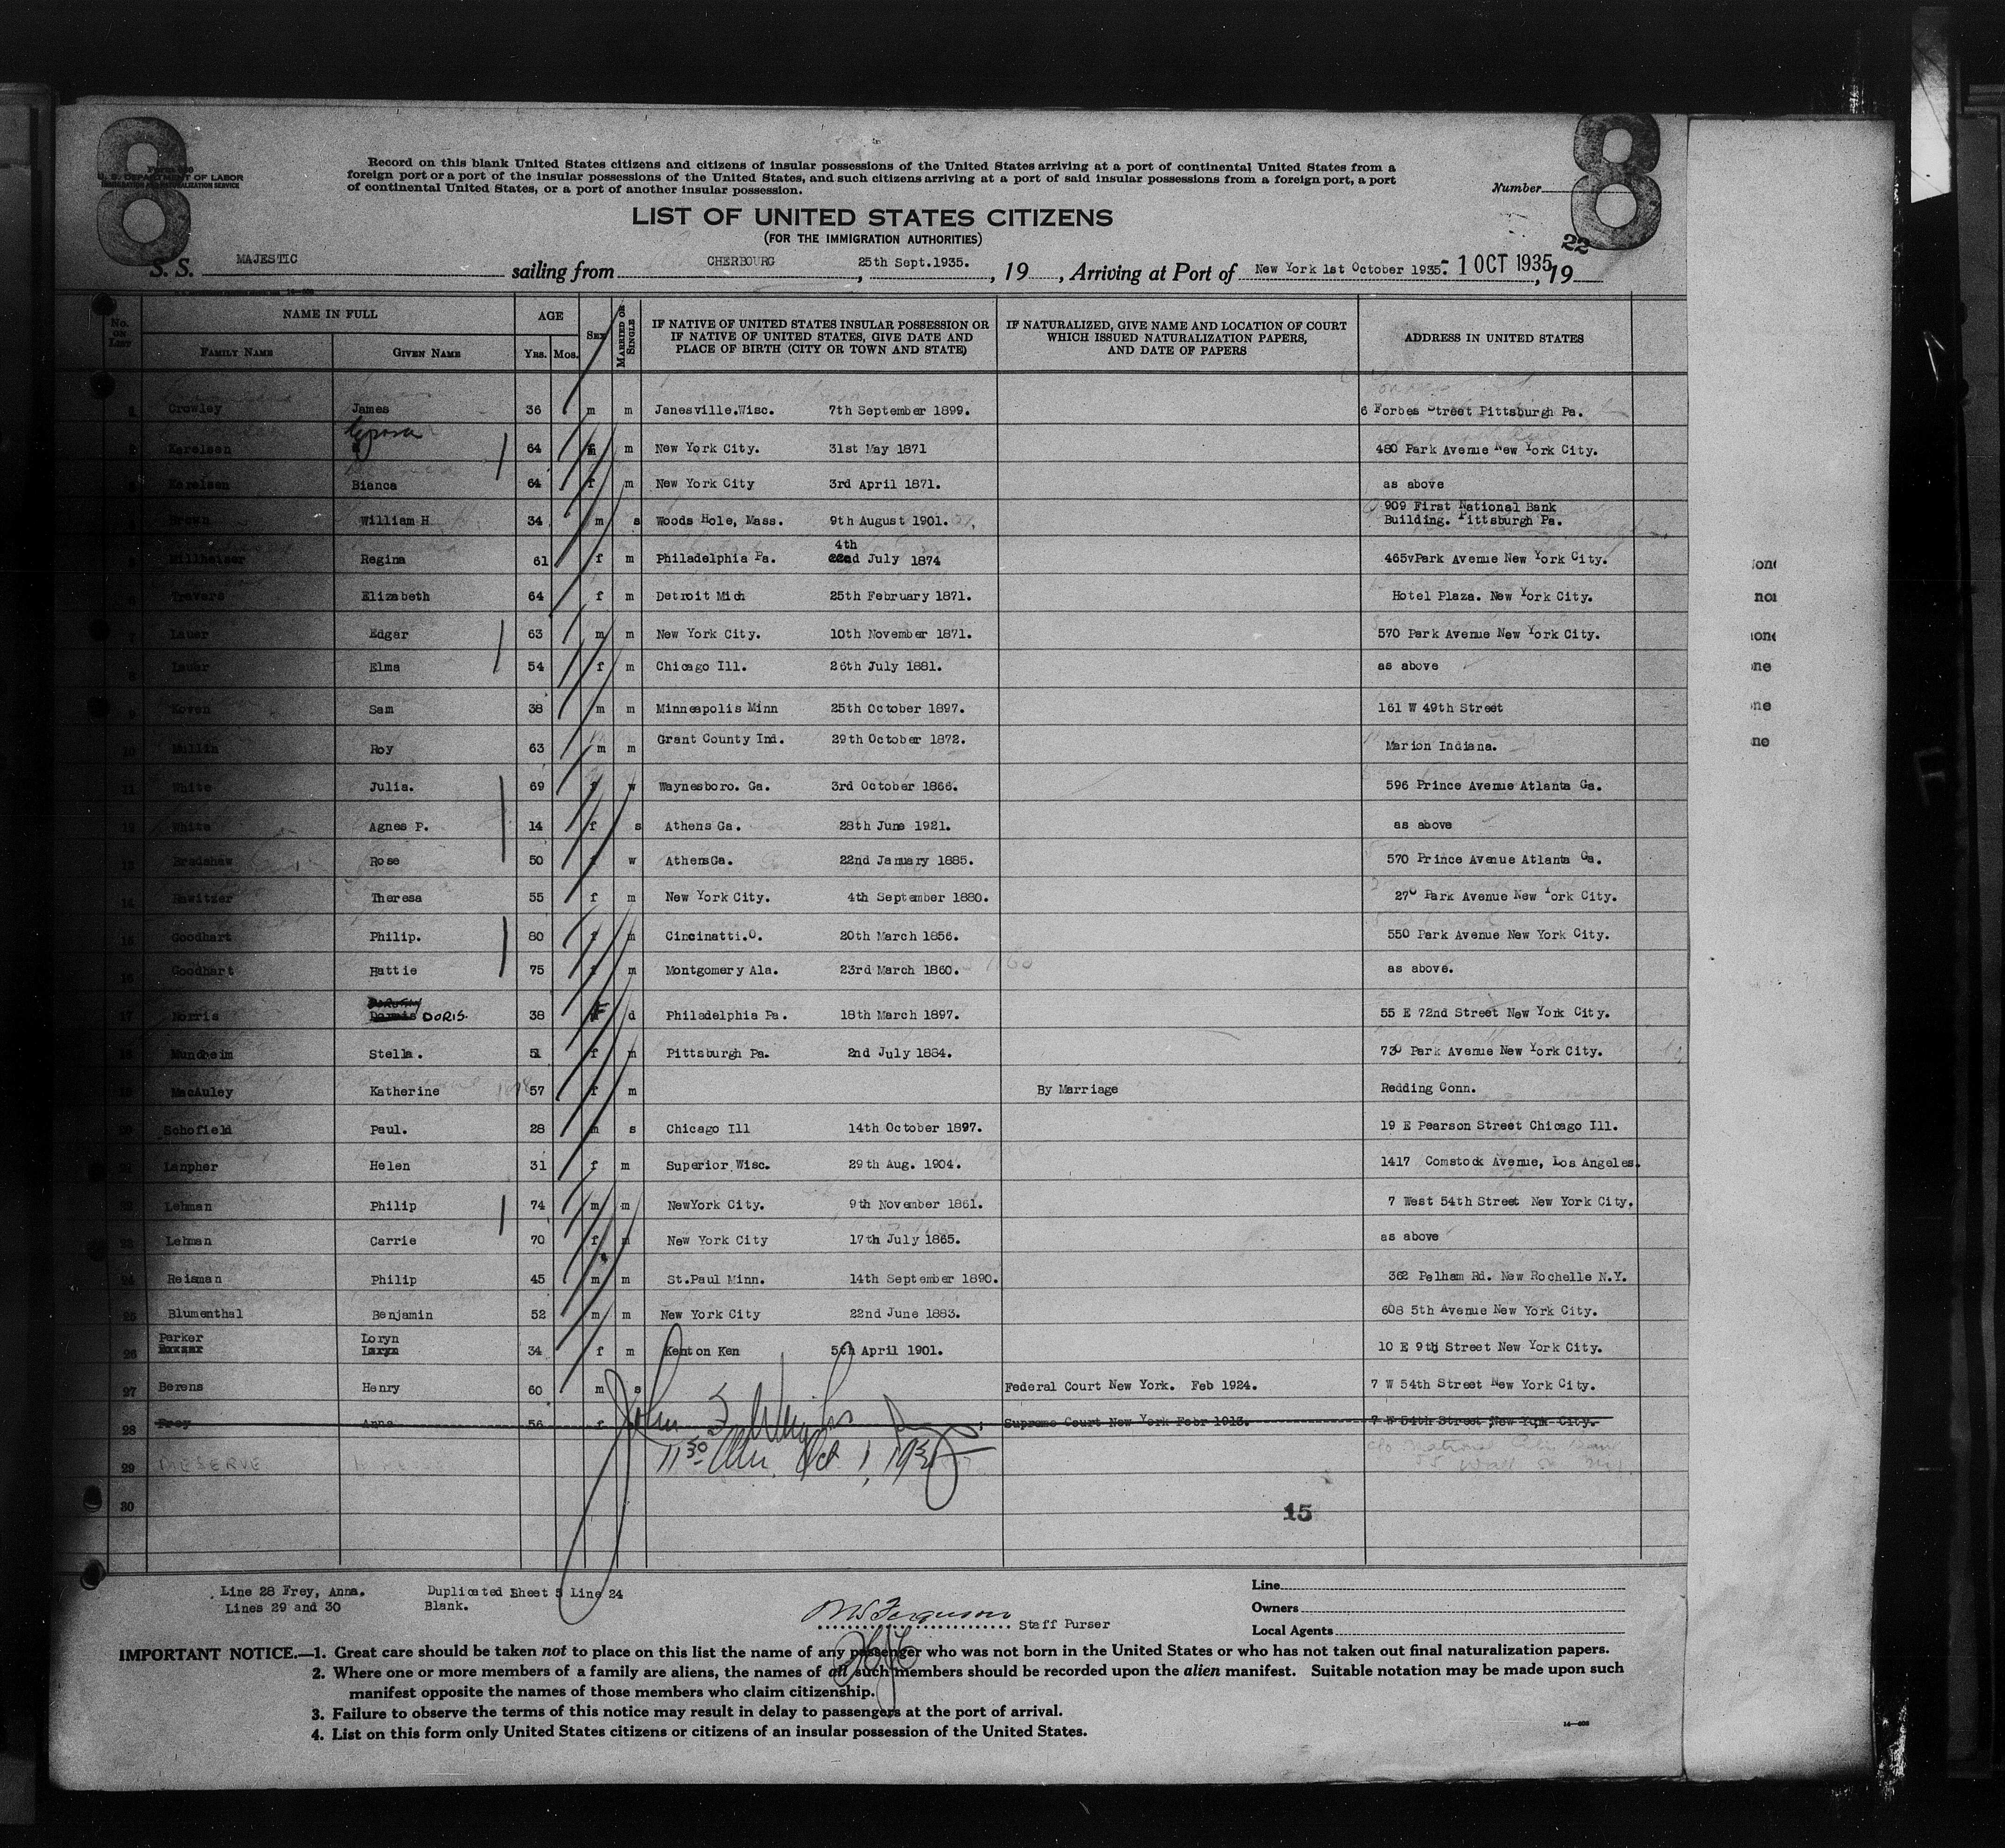 8 8
Form 630
U. S. DEPARTMENT OF LABOR
IMMIGRATION AND NATURALIZATION SERVICE
Record on this blank United States citizens and citizens of insular possessions of the United States arriving at a port of continental United States from a
foreign port or a port of the insular possessions of the United States, and such citizens arriving at a port of said insular possessions from a foreign port, a port
of continental United States, or a port of another insular possession.
Number
LIST OF UNITED STATES CITIZENS
(FOR THE IMMIGRATION AUTHORITIES)
22
S. S. MAJESTIC sailing from CHERBOURG, 25th Sept.1935., 19, Arriving at Port of New York 1st October 1935. - 1 OCT 1935, 19
No. ON LIST NAME IN FULL AGE SEX MARRIED OR SINGLE IF NATIVE OF UNITED STATES INSULAR POSSESSION OR IF NATIVE OF UNITED STATES, GIVE DATE AND PLACE OF BIRTH (CITY OR TOWN AND STATE) IF NATURALIZED, GIVE NAME AND LOCATION OF COURT WHICH ISSUED NATURALIZATION PAPERS, AND DATE OF PAPERS ADDRESS IN UNITED STATES
FAMILY NAME GIVEN NAME YRS. MOS.
1 Crowley James 36 m m Janesville.Wisc. 7th September 1899. 6 Forbes Street Pittsburgh Pa.
2 Karelsen 64 m New York City. 31st May 1871 480 Park Avenue New York City.
3 Karelsen Bianca 64 f m New York City 3rd April 1871. as above
4 Brown William H 34 m s Woods Hole, Mass. 9th August 1901. 909 First National Bank
Building. Pittsburgh Pa.
5 Millheiser Regina 61 f m Philadelphia Pa. 4th 22nd July 1874 465vPark Avenue New York City.
6 Travers Elizabeth 64 f m Detroit Mich 25th February 1871. Hotel Plaza. New York City.
7 Lauer Edgar 63 m m New York City. 10th November 1871. 570 Park Avenue New York City.
8 Lauer Elma 54 f m Chicago Ill. 26th July 1881. as above
9 Koven Sam 38 m m Minneapolis Minn 25th October 1897. 161 W 49th Street
10 Mullin Roy 63 m m Grant County Ind. 29th October 1872. Marion Indiana.
11 White Julia. 69 f w Waynesboro. Ga. 3rd October 1866. 596 Prince Avenue Atlanta Ga.
12 White Agnes P. 14 f s Athens Ga. 28th June 1921. as above
13 Bradshaw Rose 50 f w AthensGa. 22nd January 1885. 570 Prince Avenue Atlanta Ga.
14 Rawitzer Theresa 55 f m New York City. 4th September 1880. 270 Park Avenue New York City.
15 Goodhart Philip. 80 m Cincinatti.O. 20th March 1856. 550 Park Avenue New York City.
16 Goodhart Hattie 75 f m Montgomery Ala. 23rd March 1860. as above.
17 Norris DOROTHY Dennis DORIS. 38 F d Philadelphia Pa. 18th March 1897. 55 E 72nd Street New York City.
18 Mundheim Stella. 51 f m Pittsburgh Pa. 2nd July 1884. 730 Park Avenue New York City.
19 MacAuley Katherine 57 f m By Marriage Redding Conn.
20 Schofield Paul. 28 m s Chicago Ill 14th October 1897. 19 E Pearson Street Chicago Ill.
21 Lanpher Helen 31 f m Superior Wisc. 29th Aug. 1904. 1417 Comstock Avenue, Los Angeles.
22 Lehman Philip 74 m m NewYork City. 9th November 1861. 7 West 54th Street New York City.
23 Lehman Carrie 70 f m New York City 17th July 1865. as above
24 Reisman Philip 45 m m St.Paul Minn. 14th September 1890. 362 Pelham Rd. New Rochelle N.Y.
25 Blumenthal Benjamin 52 m m New York City 22nd June 1883. 608 5th Avenue New York City.
Parker Loryn
26 34 f m Kenton Ken 5th April 1901. 10 E 9th Street New York City.
27 Berens Henry 60 m s Federal Court New York. Feb 1924. 7 W 54th Street New York City.
28 Frey Anna 56 f Supreme Court New York Febr 1913. 7 W 54th Street New York City.
11 30 AM. Oct 1, 1935
29 MESERVE c/o National City Bank
55 Wall St
30
15
Line 28 Frey, Anna. Duplicated Sheet 5 Line 24
Lines 29 and 30 Blank.
Ferguson Staff Purser
Line
Owners
Local Agents
IMPORTANT NOTICE.—1. Great care should be taken not to place on this list the name of any passenger who was not born in the United States or who has not taken out final naturalization papers.
2. Where one or more members of a family are aliens, the names of all such members should be recorded upon the alien manifest. Suitable notation may be made upon such
manifest opposite the names of those members who claim citizenship.
3. Failure to observe the terms of this notice may result in delay to passengers at the port of arrival.
4. List on this form only United States citizens or citizens of an insular possession of the United States.